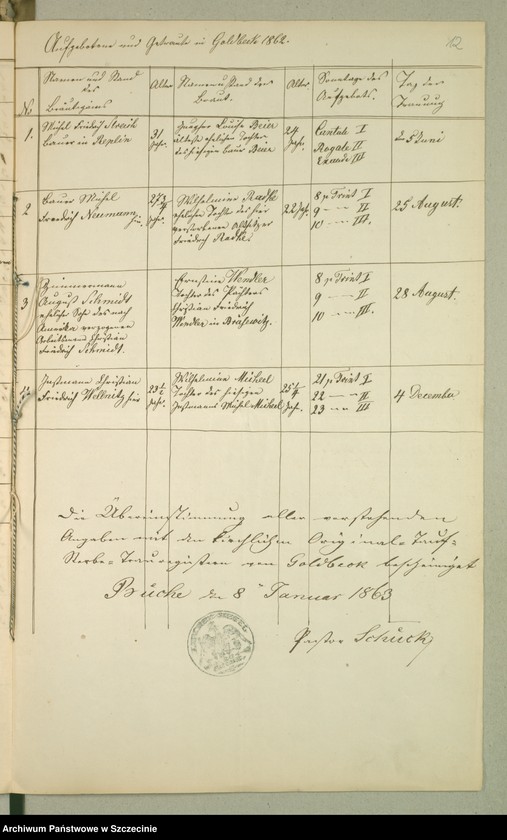 Aufgebotene und Getraute in Goldbeck 1862.
12
No
Namen und Stand
des
Bräutigams
Alter
Namen u. Stand der
Braut.
Alter
Sonntage des
Aufgebots.
Tag der
Trauung
1.
Michel Friedrich Streich
Bauer in Replin
31
Jahr.
Louise Beier
älteste eheliche Tochter
des hiesigen Bauer Beier
24
Jahr.
Cantate I
Rogate II
Exaudi III
d. 5 Juni
2
Bauer Michel
Friedrich Neumann hier.
27 3/4
Jahr.
Wilhelmine Radtke
eheliche Tochter des hier
verstorbenen Altsitzer
Friedrich Radtke.
22 Jahr.
8 p Trint I
9 — — II
10 — — III.
25 August.
3
Zimmermann
August Schmidt
ehelicher Sohn des nach
Amerika verzogenen
Arbeitsmann Christian
Friedrich Schmidt.
Ernstine Wendler
Tochter des Pächters
Christian Friedrich
Wendler in
8 p Trint I
9 — — II
10 — — III.
28 August.
Instmann Christian
Friedrich Wellnitz hier
23 1/2
Jahr.
Wilhelmine Micheel
Tochter des hiesigen
Instmanns Michel Micheel
25 1/4
Jahr.
21 p Trint I
22 — — II
23 — — III
4 December
Die Übereinstimmung aller vorstehenden
Angaben mit den kirchlichen Original-Tauf-
Sterbe-Trauregistern von Goldbeck bescheinigt
Büche den 8 Januar 1863
Pastor Schück
Archiwum Państwowe w Szczecinie